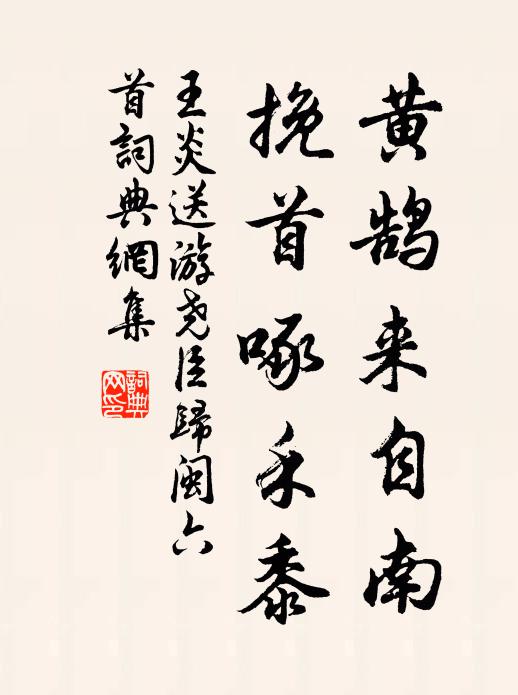 黄鹄来自南
挽首啄禾黍
王炎送游尧臣歸闽六
首詞典網集
詞典网印